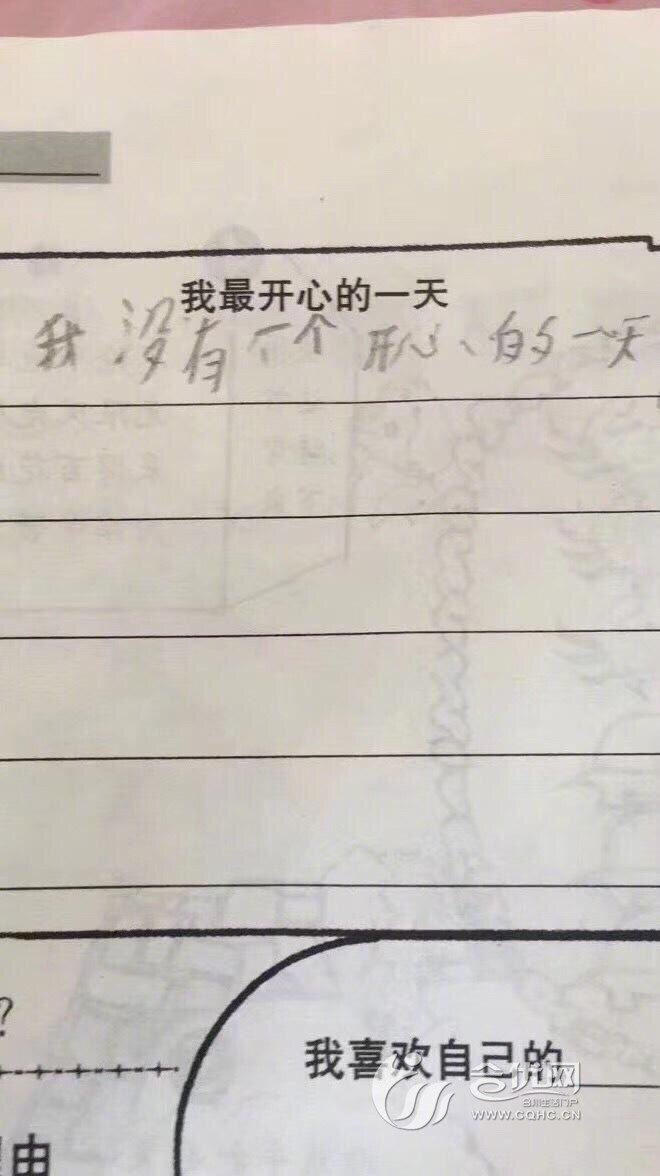 我最开心的一天
我没有一个开心的一天
?
我喜欢自己的
由
合川生活门户
WWW.CQHC.CN